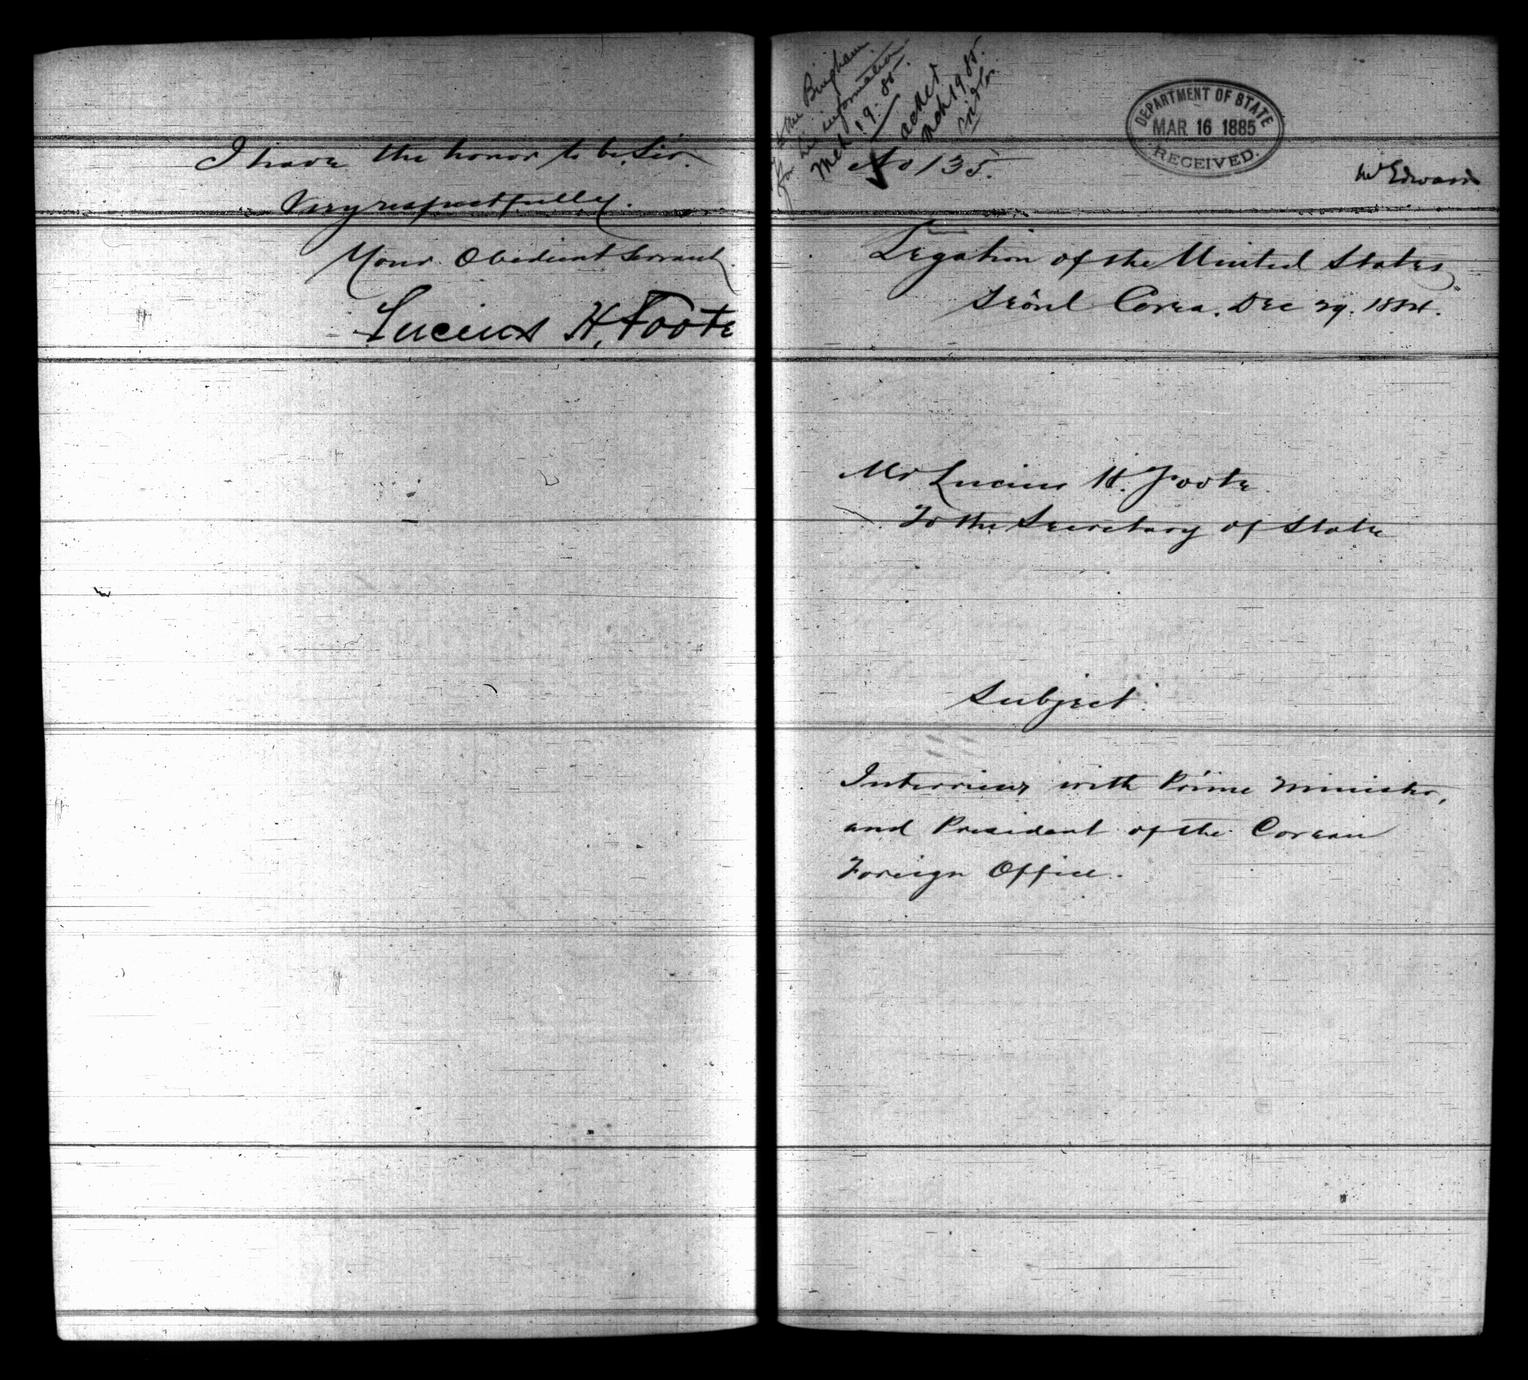 I have the honor to be, Sir.
Very respectfully.
Your Obedient Servant.
Lucius H. Foote
to Mr Bingham
for his information
Mch. 19. 85.
acked
Mch 19 85.
DEPARTMENT OF STATE
MAR 16 1885
RECEIVED.
No 135.
Mr Edward
Legation of the United States
Sëoul Corea. Dec 29. 1884.
Mr Lucius H. Foote
To the Secretary of State
Subject.
Interview with Prime Minister,
and President of the Corean
Foreign Office.